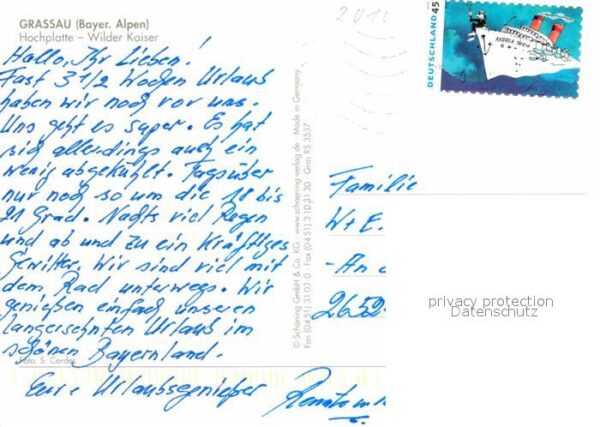 GRASSAU (Bayer. Alpen)
Hochplatte – Wilder Kaiser
Hallo, Ihr Lieben!
Fast 3 1/2 Wochen Urlaub
haben wir noch vor uns.
Uns geht es super. Es hat
sich allerdings auch ein
wenig abgekühlt. Tagsüber
nur noch so um die 18 bis
21 Grad. Nachts viel Regen
und ab und zu ein kräftiges
Gewitter. Wir sind viel mit
dem Rad unterwegs. Wir
genießen einfach unseren
langersehnten Urlaub im
schönen Bayernland.
Foto: S. Cordes
Eure Urlaubsgenießer
Renate
© Schöning GmbH & Co. KG · www.schoening-verlag.de · Made in Germany
Fon (04 51) 31 03 0 · Fax (04 51) 3 10 31 30 · Gras RS 3537
2010
DEUTSCHLAND 45
ANDREA DORIA
Familie
W + E.
- An
2652
privacy protection
Datenschutz